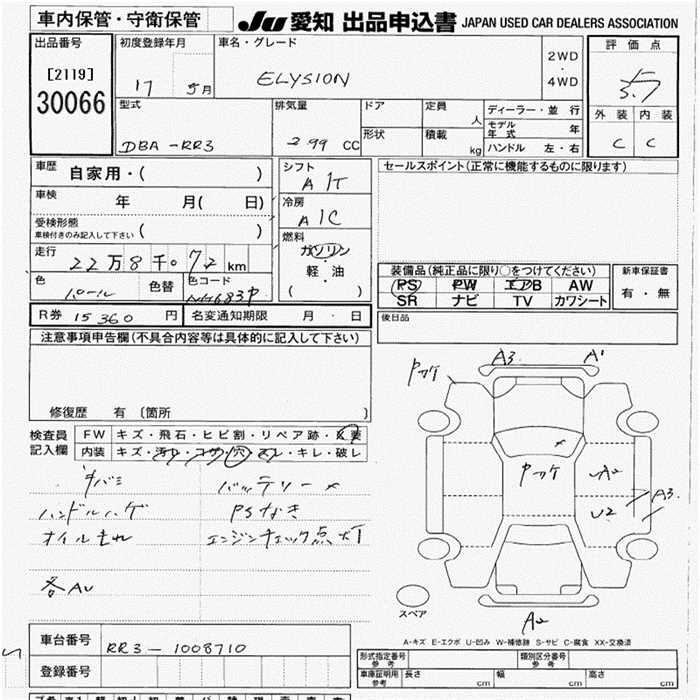 車内保管・守衛保管
JU 愛知 出品申込書 JAPAN USED CAR DEALERS ASSOCIATION
出品番号
[2119]
30066
初度登録年月
17 5月
車名・グレード
ELYSION
2WD
・
4WD
評価点
外装 内装
C C
型式
DBA-RR3
排気量
299 CC
ドア
形状
定員
人
積載
kg
ディーラー・並行
モデル年式 年
ハンドル 左・右
車歴
自家用・( )
車検
年 月( 日)
受検形態
車検付きのみ記入して下さい ( )
走行
22万8千072km
色
パール
色替
色コード
NH683P
シフト
A/T
冷房
A/C
燃料
ガソリン
軽・油
( )
セールスポイント(正常に機能するものに限ります)
装備品(純正品に限り○をつけてください)
PS PW エアB AW
SR ナビ TV カワシート
新車保証書
有・無
R券 15360 円
名変通知期限 月・日
後日品
注意事項申告欄(不具合内容等は具体的に記入して下さい)
修復歴 有〔箇所 〕
検査員
記入欄
FW キズ・飛石・ヒビ割・リペア跡・X要
内装 キズ・汚レ・コゲ・穴・スレ・キレ・破レ
バッテリー×
ハンドルハゲ PSなき
オイルもれ エンジンチェック点灯
各AU
Pカケ
A3
A1
×
Pカケ
A2
U2
A3
A2
スペア
A-キズ E-エクボ U-凹み W-補修跡 S-サビ C-腐食 XX-交換済
車台番号 RR3-1008710
登録番号
形式指定番号 参考
類別区分番号 参考
車庫証明用 参考 長さ cm 幅 cm 高さ cm